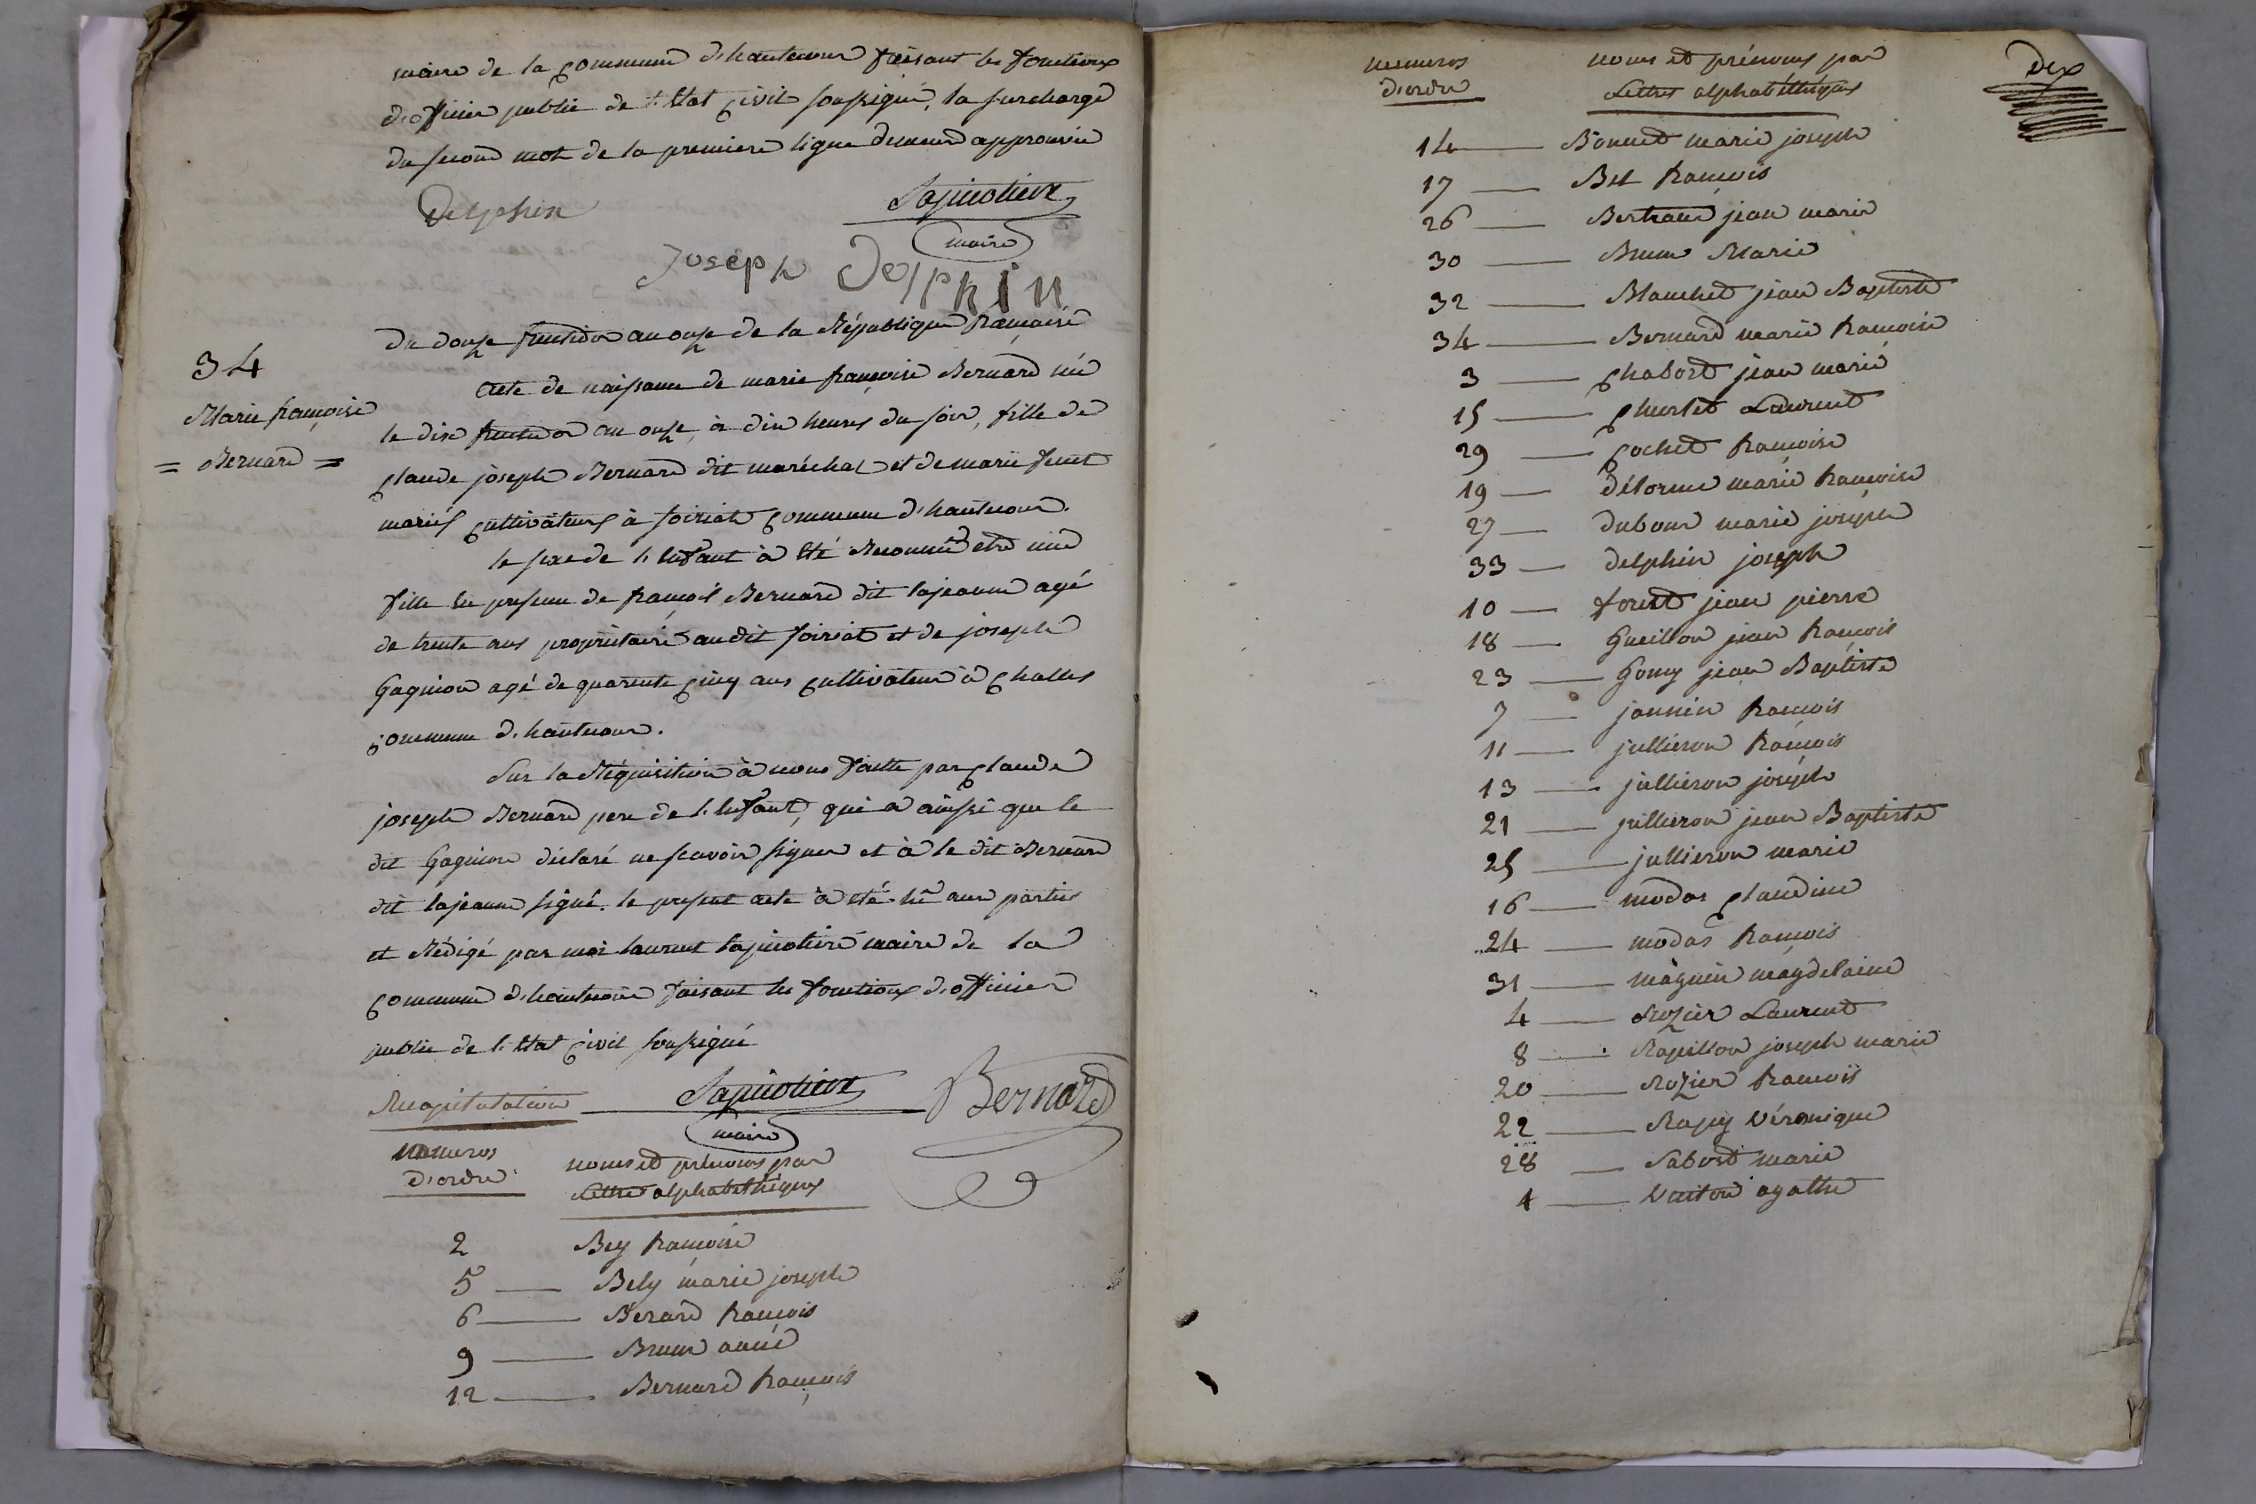 maire de la commune d'hautecour faisant les fonctions
d'officier public de l'Etat civil soussigné, la surcharge
du second mot de la premiere ligne demeure approuvée
Delphin
Lapierre
maire
Joseph Delphin
34
Marie françoise
= Bernard =
Du douze fructidor an onze de la République française
acte de naissance de marie françoise Bernard née
le dix fructidor an onze, à dix heures du soir, fille de
claude joseph Bernard dit maréchal et de marie
mariés cultivateurs à soiriat commune d'hautecour.
le sexe de l'Enfant à été Reconnu etre une
fille En presence de françois Bernard dit lajeanne agé
de trente ans propriétaire audit soiriat et de joseph
Gagnion agé de quarente cinq ans cultivateur à challes
commune d'hautecour.
Sur la Réquisition à nous faitte par claude
joseph Bernard pere de l'Enfant, qui a ainsi que le
dit Gagnion déclaré ne scavoir signer et à le dit Bernard
dit lajeanne signé. le present acte à été lû aux parties
et Rédigé par moi laurent maire de la
commune d'hautecour faisant les fonctions d'officier
public de l'Etat civil soussigné
Recapitulation
maire
Bernard
numeros
d'ordre
noms et prénoms par
Lettres alphabéthiques
2 Bey françoise
5 — Bely marie joseph
6 — Berard françois
9 — Brun anne
12 — Bernard françois
dix
numeros
d'ordre
noms et prénoms par
Lettres alphabéthiques
14 — Bonnet marie joseph
17 — Bel françois
26 — Bertrand jean marie
30 — Brun Marie
32 — Blanchet jean Baptiste
34 — Bernard marie françoise
3 — chabord jean marie
15 — Laurent
29 — cochet françoise
19 — délorme marie françoise
27 — dubour marie joseph
33 — delphin joseph
10 — foret jean pierre
18 — Gueillon jean françois
23 — Gomy jean Baptiste
7 — jannin françois
11 — jullieron françois
13 — jullieron joseph
21 — jullieron jean Baptiste
25 — jullieron marie
16 — modas claudine
24 — modas françois
31 — magnin magdelaine
4 — Rozier Laurent
8 — Rapillon joseph marie
20 — Rozier françois
22 — Rapy véronique
28 — Sabord marie
1 — agathe